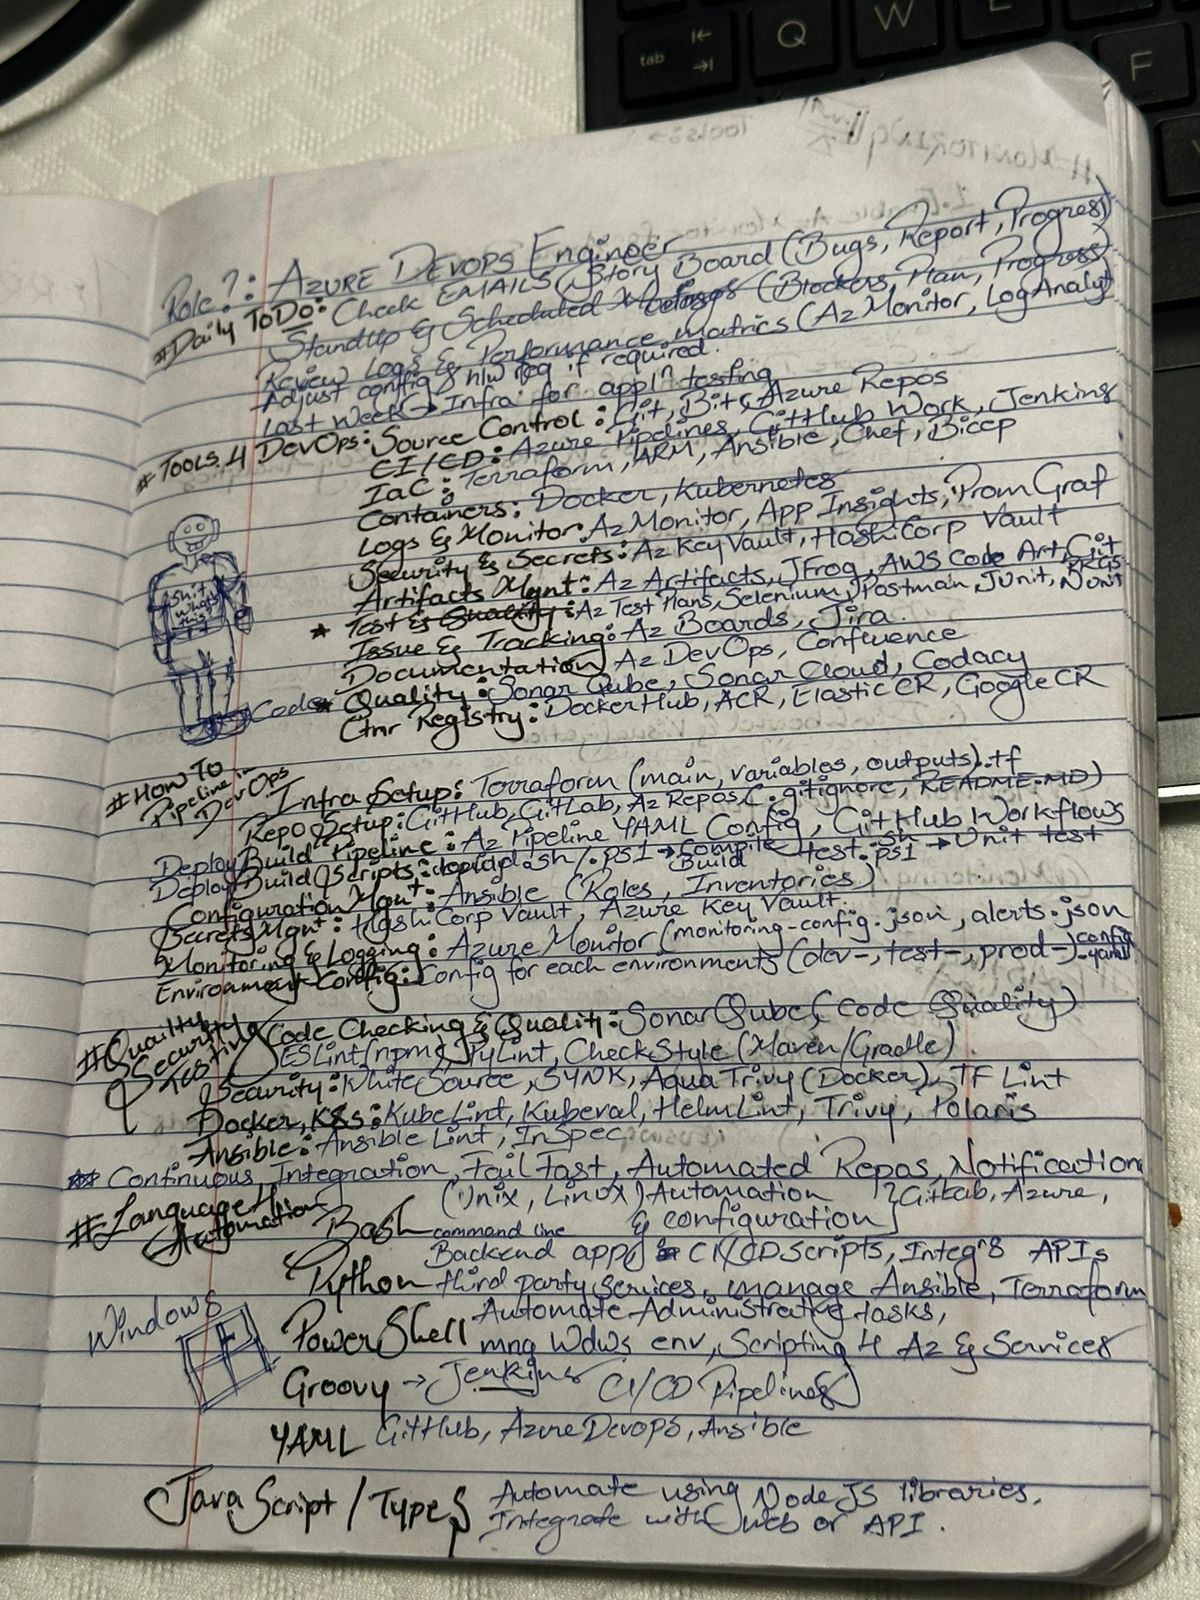 tab
Q
W
F
Role?: AZURE DEVOPS Engineer
#Daily ToDo: Check EMAILS, Story Board (Bugs, Report, Progress)
StandUp & Scheduled Meetings (Blockers, Plan, Progress)
Review Logs & Performance matrics (Az Monitor, Log Analyt
Adjust config & h/w req if required.
Last week → Infra for appln testing
# Tools 4 DevOps: Source Control: Git, Bit, Azure Repos
CI/CD: Azure Pipelines, GitHub Work, Jenkins
IaC: Terraform, ARM, Ansible, Chef, Bicep
Containers: Docker, Kubernetes
Logs & Monitor: Az Monitor, App Insights, Prom Graf
Security & Secrets: Az Key Vault, HashiCorp Vault
Artifacts Mgnt: Az Artifacts, JFrog, AWS Code Art, Git PKGS
* Test & Quality: Az Test Plans, Selenium, Postman, JUnit, NUnit
Issue & Tracking: Az Boards, Jira.
Documentation) Az DevOps, Confluence
Code * Quality: Sonar Qube, Sonar Cloud, Codacy
Ctnr Registry: DockerHub, ACR, Elastic CR, Google CR
Shit what's this
#How To Pipeline in DevOps
Infra Setup: Terraform (main, variables, outputs).tf
Repo Setup: GitHub, GitLab, Az Repos, (.gitignore, README.MD)
Deploy/Build Pipeline: Az Pipeline YAML Config, GitHub Workflows
Deploy/Build Scripts: .sh/.ps1 → compile Build test.sh .ps1 → Unit test
Configuration Mgnt: Ansible (Roles, Inventories)
Secrets Mgnt: HashiCorp Vault, Azure Key Vault.
Monitoring & Logging: Azure Monitor (monitoring-config.json, alerts.json
Environment Config: Config for each environments (dev-, test-, prod-) config .yaml
#Quality Security Testing
Code Checking & Quality: SonarQube (Code Quality)
ESLint (npm), PyLint, CheckStyle (Maven/Gradle).
Security: WhiteSource, SYNK, Aqua Trivy (Docker), TF Lint
Docker, K8s: KubeLint, Kubeval, HelmLint, Trivy, Polaris
Ansible: Ansible Lint, InSpec
** Continuous Integration, Fail Fast, Automated Repos, Notification
#Language 4 Automation
Bash (Unix, Linux) Automation & configuration } GitLab, Azure,
command line
Python Backend apps & CI/CD scripts, Integr8 APIs
third party services, manage Ansible, Terraform
Windows
PowerShell Automate Administrative tasks,
mng Wdws env, Scripting 4 Az & Services
Groovy → Jenkins CI/CD Pipelines
YAML GitHub, Azure Devops, Ansible
JavaScript / TypeS Automate using Node JS libraries.
Integrate with web or API.